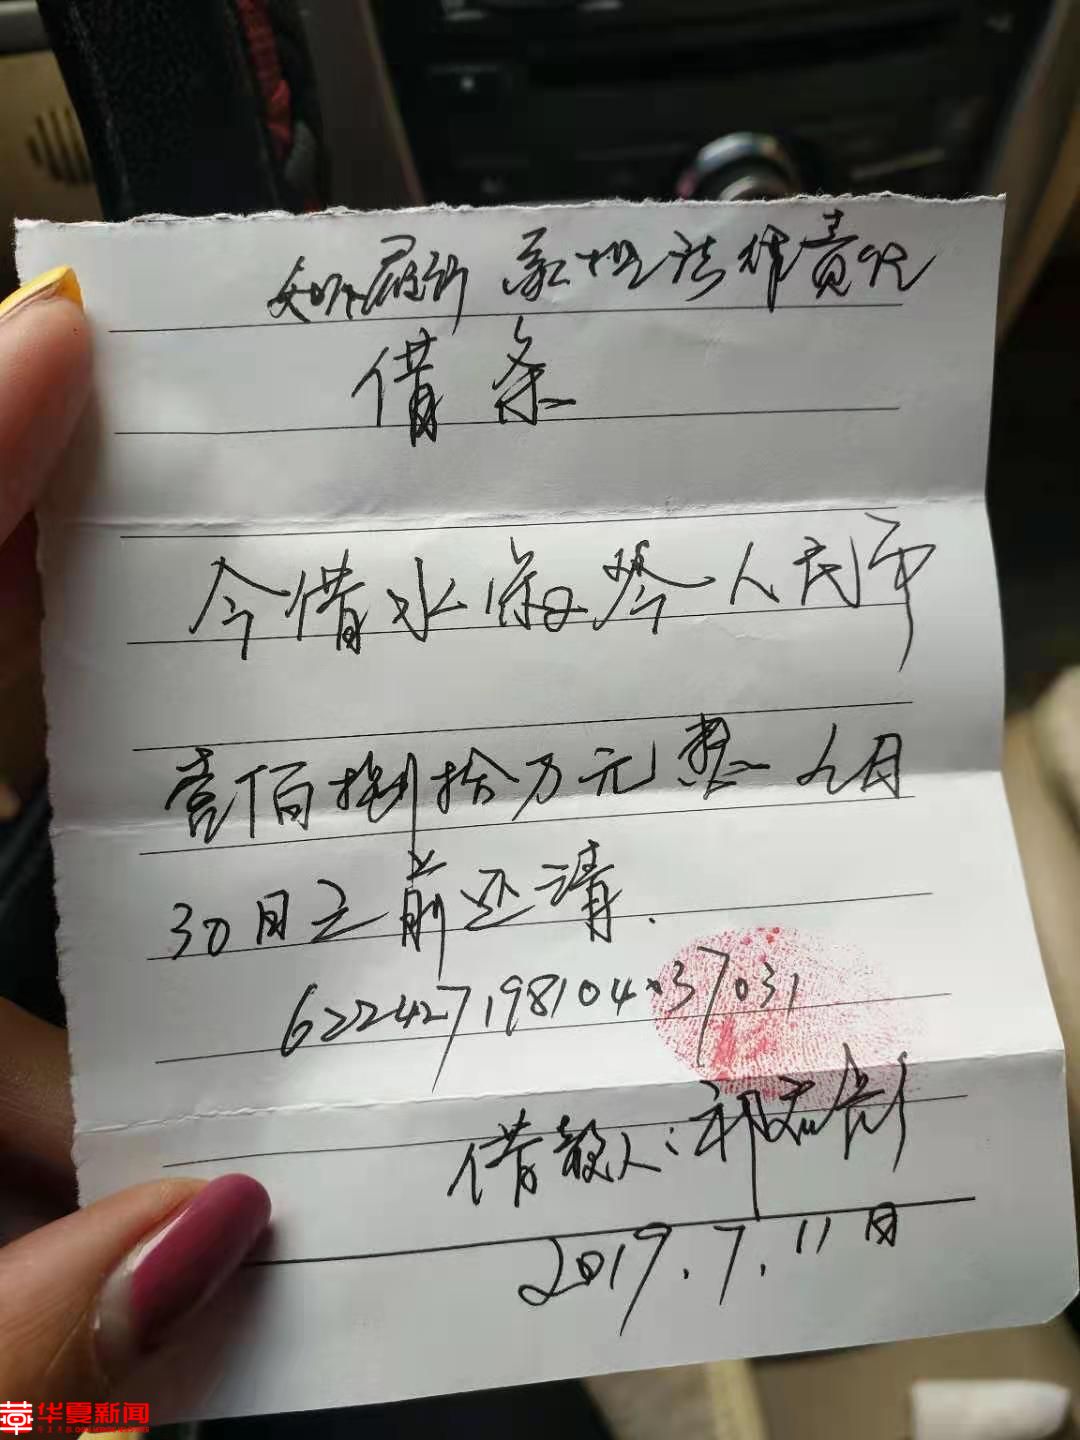 如不履行 承担法律责任
借条
今借水保琴人民币
壹佰捌拾万元整 九月
30日之前还清.
622427198104037031
借款人:祁
2019.7.11日
華 华夏新闻